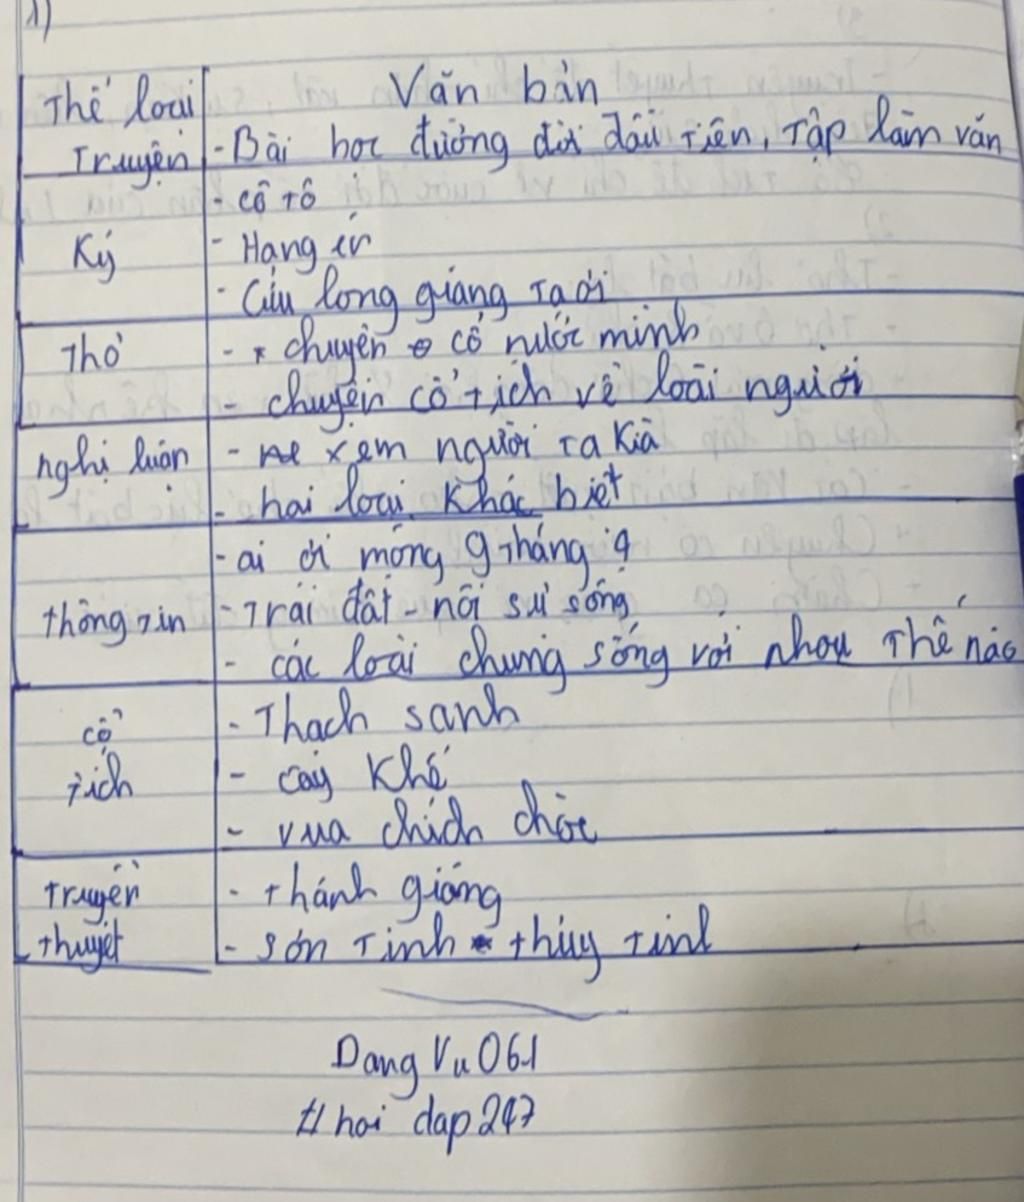 1)
Thể loại Văn bản
Truyện - Bài học đường đời đầu tiên, Tập làm văn
- cô tô
Ký - Hang én
- Cửu long giang ta ơi
Thơ - chuyện cổ nước mình
- chuyện cổ tích về loài người
nghị luận - xem người ta kìa
- hai loại khác biệt
- ai ơi mồng 9 tháng 4
thông tin - Trái đất - nôi sự sống
- các loài chung sống với nhau thế nào
cổ - Thạch sanh
tích - cây khế
- vua chích chòe
truyền - thánh gióng
thuyết - sơn Tinh thủy Tinh
Dang Vu 061
# hoi dap 247